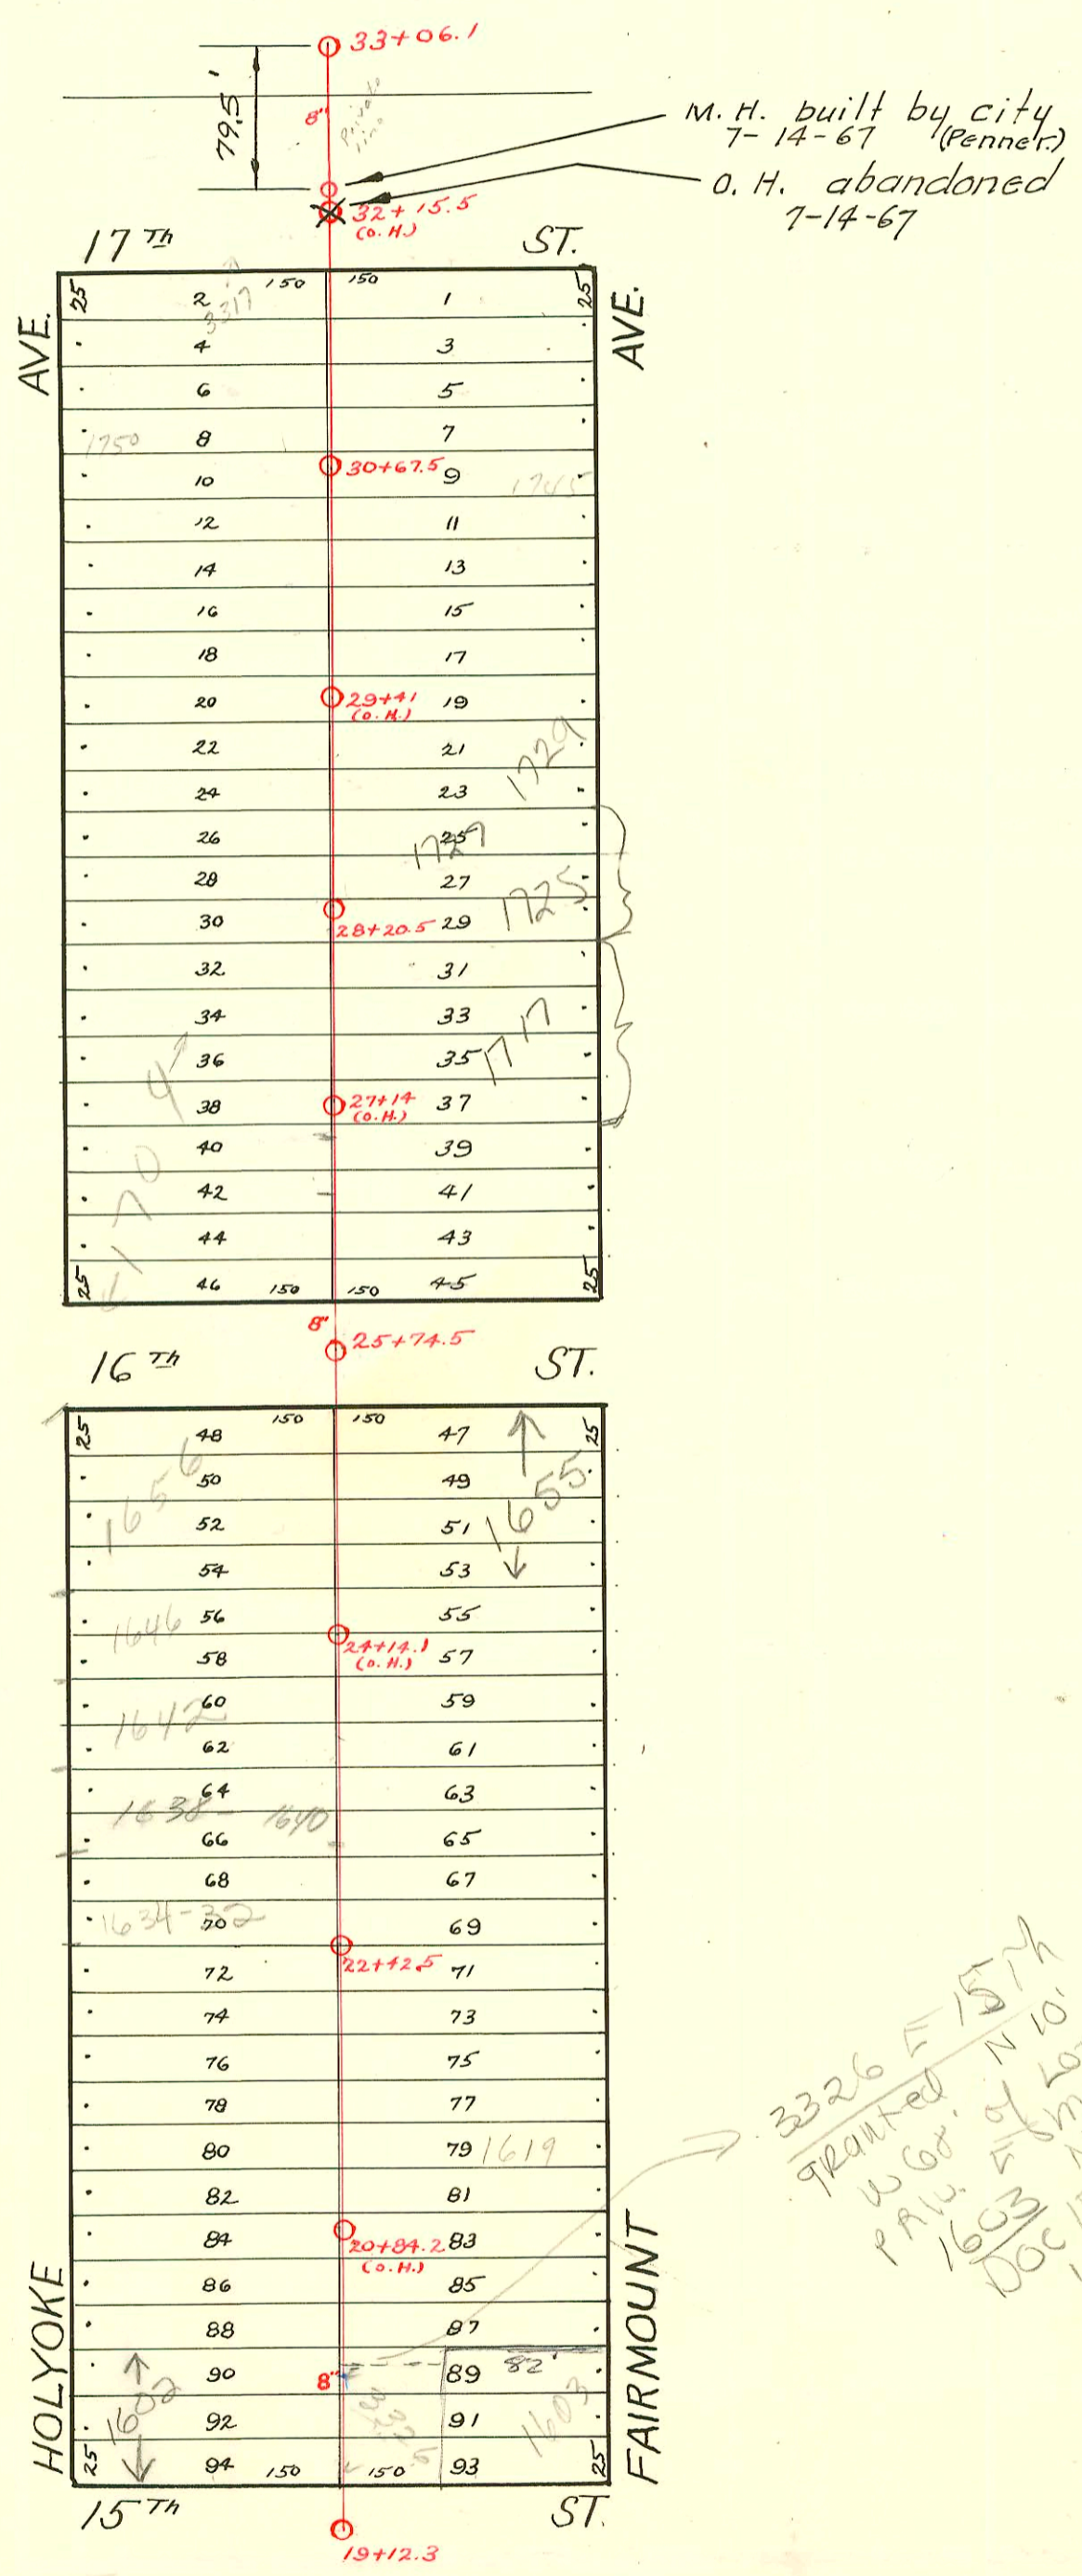 33+06.1
79.5'
8"
Private
line
M.H. built by city
7-14-67 (Penner.)
O.H. abandoned
7-14-67
32+15.5
(O.H.)
17 Th ST.
AVE.
AVE.
25 2 150 150 1 25
3317
4 3
6 5
8 7
1750
30+67.5
10 9
1745
12 11
14 13
16 15
18 17
20 29+41 19
(O.H.)
22 21
1729
24 23
26 25
1727
28 27
1725
30 28+20.5 29
32 31
34 33
1717
36 35
38 27+14 37
(O.H.)
40 39
42 41
44 43
25 46 150 150 45 25
8"
25+74.5
16 Th ST.
25 48 150 150 47 25
1656
50 49
1655
52 51
54 53
56 55
1646
24+14.1
(O.H.)
58 57
60 59
1642
62 61
64 63
1638- 1640
66 65
68 67
1634-32
70 69
22+42.5
72 71
74 73
76 75
78 77
80 79 1619
82 81
84 83
20+84.2
(O.H.)
86 85
88 87
90 8" 89 82'
1602
3326
1603
92 91
25 94 150 150 93 25
HOLYOKE
FAIRMOUNT
15 Th ST.
19+12.3
3326 E 15Th
granted N 10'
W 68' of
1603
DOC